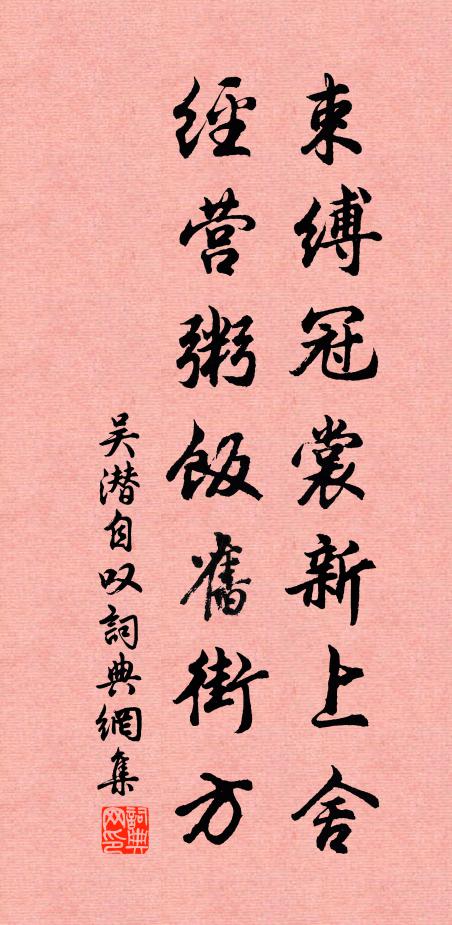 束缚冠裳新上舍
经营粥饭舊街方
吴潜自叹詞典網集
詞典网印